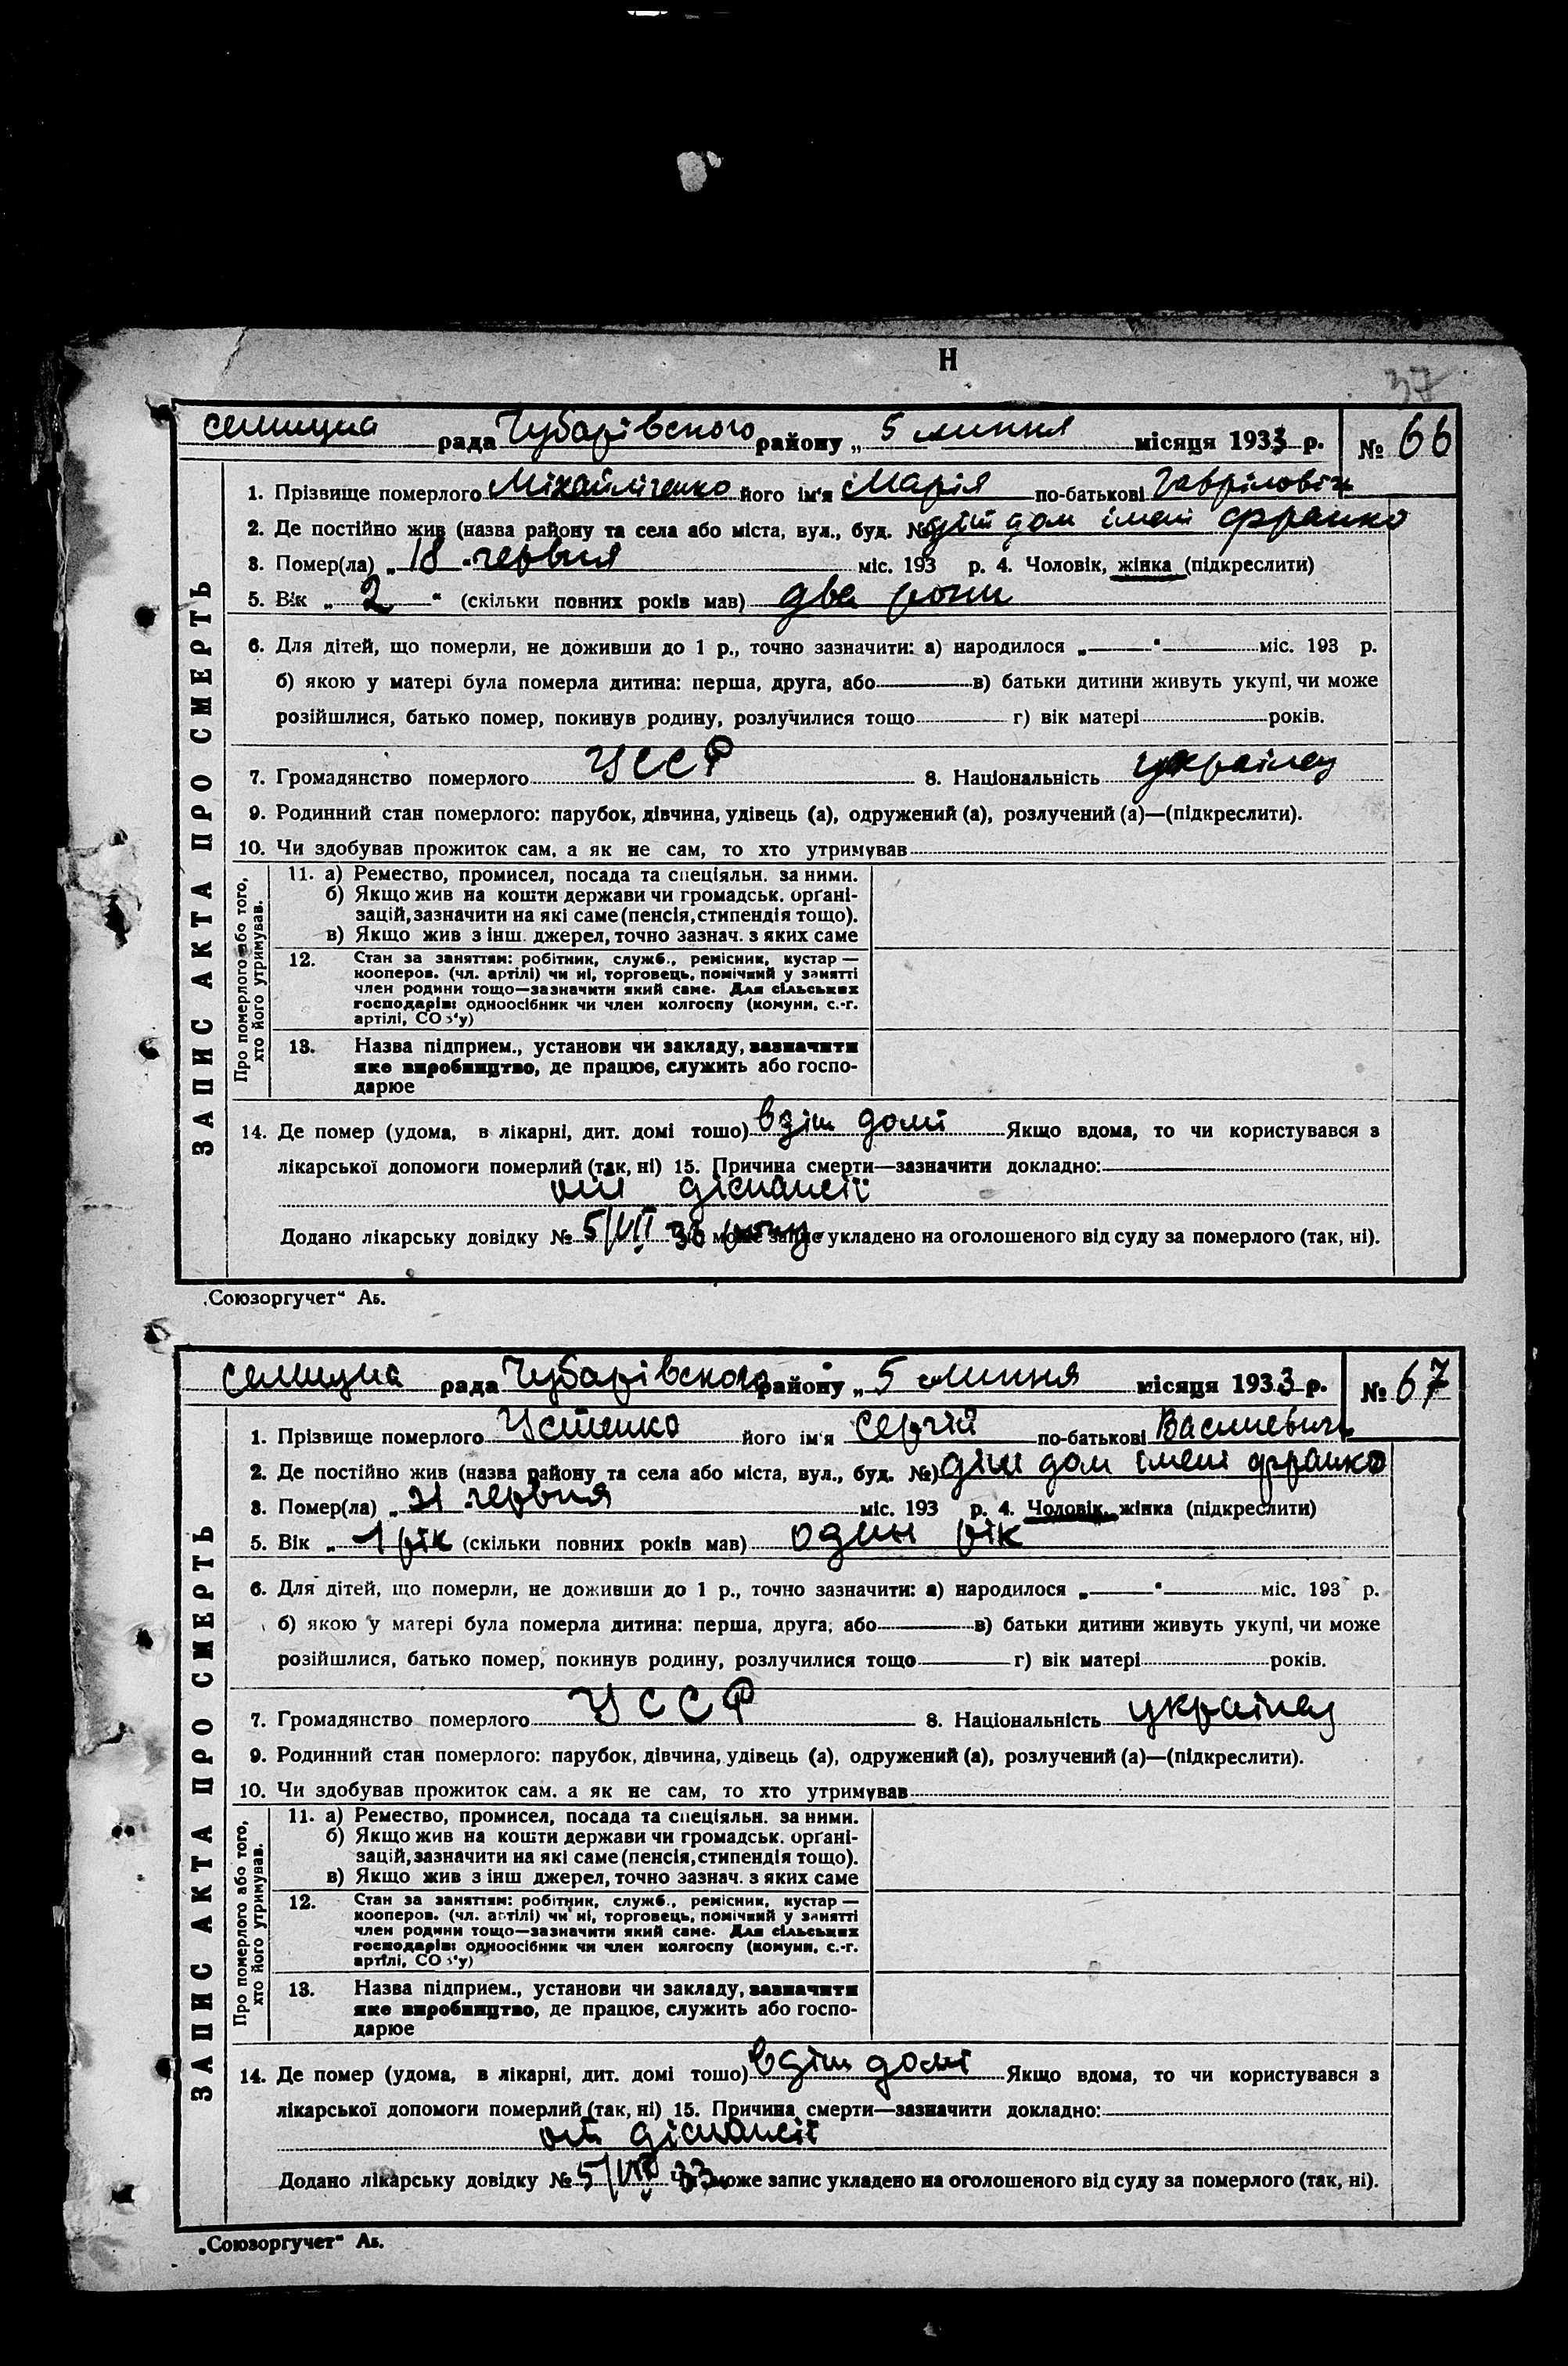 Н
37
селищна рада Чубарівского району „ 5 липня місяця 1933 р. № 66
1. Прізвище померлого Міхайліченко його ім'я Марія по-батькові Гаврілович
2. Де постійно жив (назва району та села або міста, вул., буд. №) діт дом імені Франко
3. Помер(ла) „ 18 " червня міс. 193 р. 4. Чоловік, жінка (підкреслити)
5. Вік „ 2 " (скільки повних років мав) два роки
6. Для дітей, що померли, не доживши до 1 р., точно зазначити: а) народилося „ " міс. 193 р.
б) якою у матері була померла дитина: перша, друга, або в) батьки дитини живуть укупі, чи може
розійшлися, батько помер, покинув родину, розлучилися тощо г) вік матері років.
7. Громадянство померлого УССР 8. Національність українец
9. Родинний стан померлого: парубок, дівчина, удівець (а), одружений (а), розлучений (а)—(підкреслити).
10. Чи здобував прожиток сам, а як не сам, то хто утримував
ЗАПИС АКТА ПРО СМЕРТЬ
Про померлого або того,
хто його утримував.
11. а) Ремество, промисел, посада та спеціяльн. за ними.
б) Якщо жив на кошти держави чи громадськ. орґані-
зацій, зазначити на які саме (пенсія, стипендія тощо).
в) Якщо жив з інш. джерел, точно зазнач. з яких саме
12. Стан за заняттям: робітник, служб., ремісник, кустар —
кооперов. (чл. артілі) чи ні, торговець, помічний у занятті
член родини тощо—зазначити який саме. Для сільських
господарів: одноосібник чи член колгоспу (комуни, с.-г.
артілі, СОЗ'у)
13. Назва підприєм., установи чи закладу, зазначити
яке виробництво, де працює, служить або госпо-
дарює
14. Де помер (удома, в лікарні, дит. домі тошо) в діт домі Якщо вдома, то чи користувався з
лікарської допомоги померлий (так, ні) 15. Причина смерти—зазначити докладно:
от діспансії
Додано лікарську довідку № 5/VII 33 року може запис укладено на оголошеного від суду за померлого (так, ні).
„Союзоргучет" Аб.
селищна рада Чубарівского району „ 5 липня місяця 1933 р. № 67
1. Прізвище померлого Устенко його ім'я Сергій по-батькові Василевич
2. Де постійно жив (назва району та села або міста, вул., буд. №) діт дом імені франко
3. Помер(ла) „ 21 червня міс. 193 р. 4. Чоловік, жінка (підкреслити)
5. Вік „ 1 рік (скільки повних років мав) один рік
6. Для дітей, що померли, не доживши до 1 р., точно зазначити: а) народилося „ " міс. 193 р.
б) якою у матері була померла дитина: перша, друга, або в) батьки дитини живуть укупі, чи може
розійшлися, батько помер, покинув родину, розлучилися тощо г) вік матері років.
7. Громадянство померлого УССР 8. Національність українец
9. Родинний стан померлого: парубок, дівчина, удівець (а), одружений (а), розлучений (а)—(підкреслити).
10. Чи здобував прожиток сам, а як не сам, то хто утримував
ЗАПИС АКТА ПРО СМЕРТЬ
Про померлого або того,
хто його утримував.
11. а) Ремество, промисел, посада та спеціяльн. за ними.
б) Якщо жив на кошти держави чи громадськ. орґані-
зацій, зазначити на які саме (пенсія, стипендія тощо).
в) Якщо жив з інш джерел, точно зазнач. з яких саме
12. Стан за заняттям: робітник, служб., ремісник, кустар —
кооперов. (чл. артілі) чи ні, торговець, помічний у занятті
член родини тощо—зазначити який саме. Для сільських
господарів: одноосібник чи член колгоспу (комуни, с.-г.
артілі, СОЗ'у)
13. Назва підприєм., установи чи закладу, зазначити
яке виробництво, де працює, служить або госпо-
дарює
14. Де помер (удома, в лікарні, дит. домі тошо) в діт домі Якщо вдома, то чи користувався з
лікарської допомоги померлий (так, ні) 15. Причина смерти—зазначити докладно:
от діспансії
Додано лікарську довідку № 5/VII 33 Чи може запис укладено на оголошеного від суду за померлого (так, ні).
„Союзоргучет" Аб.